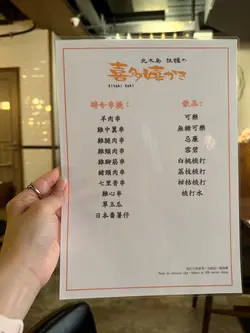 喜多嬉かき
Kitaki Kaki
時令串燒：
羊肉串
雞中翼串
雞腿肉串
雞頸肉串
雞腳筋串
豬頸肉串
七里香串
雞心串
翠玉瓜
日本番薯仔
飲品：
可樂
無糖可樂
忌廉
雪碧
白桃梳打
荔枝梳打
柑桔梳打
梳打水